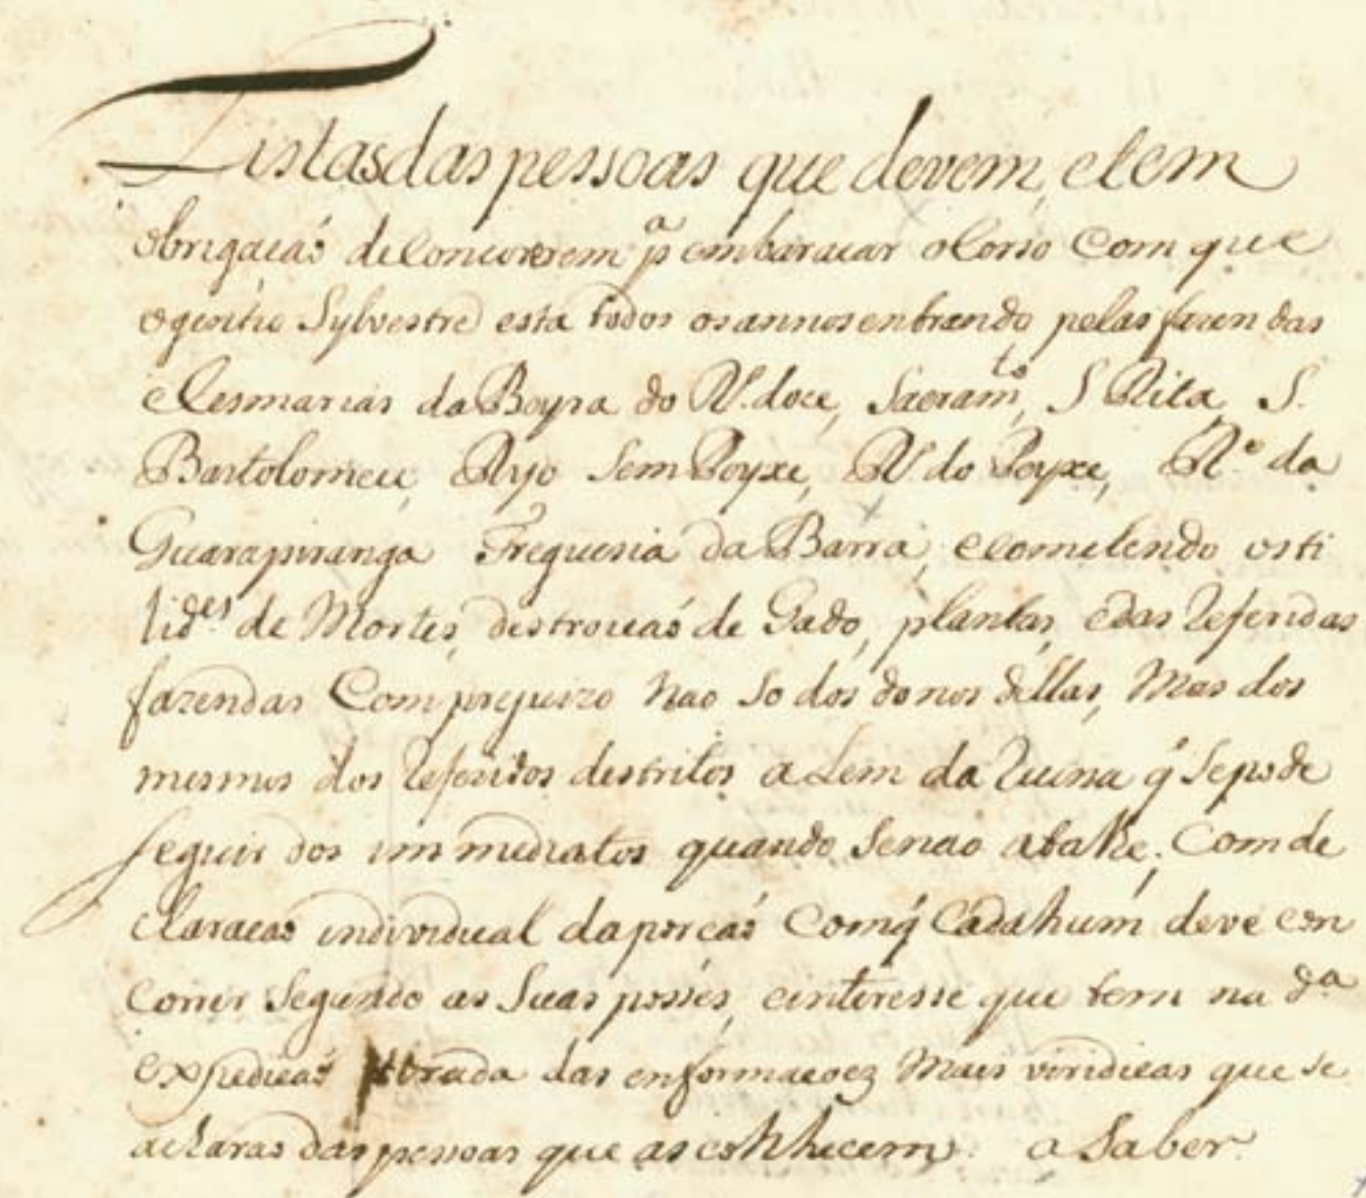 Listas das pessoas que devem, e tem
obrigacaõ de Concorerem pª embaracar o Corso Com que
o gentio Sylvestre está todos os annos entrando pelas fazendas
e Cesmarias da Beyra do Rº. doce, Sacramto, S Rita, S.
Bartolomeu, Ryo Sem Peyxe, Rº. do Peyxe, Rº da
Guarapiranga Freguesia da Barra, e cometendo osti
lidᵉˢ de Mortes, destroicaõ de Gado, plantas, e das Referidas
fazendas Com prejuizo nao so dos donos dellas, Mas dos
mesmos dos Referidos destritos a Lem da Ruina q̃ Se pode
seguir dos immediatos quando Se nao atalhe. Com de
claracaõ individual da porcaõ Com q̃ Cada hum deve con
correr Segundo as Suas posses, e interesse que tem na dª
expedicaõ tirada das enformacoez Mais viridicas que se
acharaõ das pessoas que as conhhecem. a Saber.